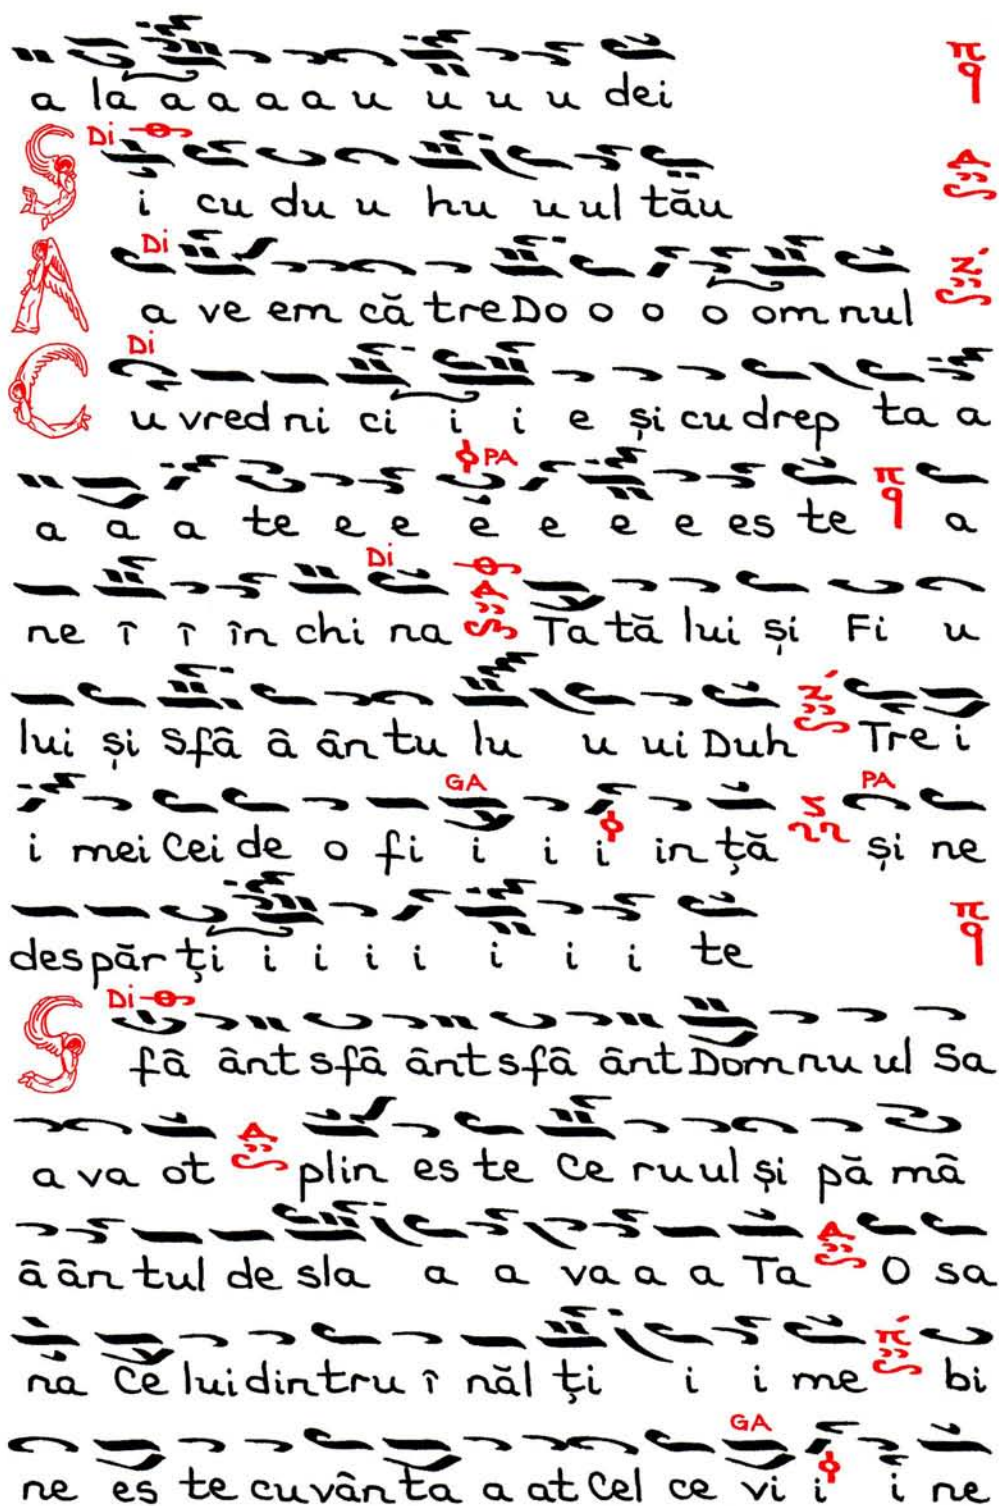 a la a a a a u u u u dei
Di
S i cu du u hu u ul tău
Di
A a ve em că tre Do o o o om nul
Di
C u vred ni ci i i e și cu drep ta a
PA
a a a te e e e e e e es te a
Di
ne î î în chi na Ta tă lui și Fi u
lui și Sfâ â ân tu lu u ui Duh Tre i
GA PA
i mei Cei de o fi i i i in ță și ne
des păr ți i i i i i i i te
Di
S fâ ânt sfâ ânt sfâ ânt Dom nu ul Sa
a va ot plin es te ce ru ul și pă mâ
â ân tul de sla a a va a a Ta O sa
na Ce lui din tru î năl ți i i me bi
GA
ne es te cu vân ta a at Cel ce vi i i ne